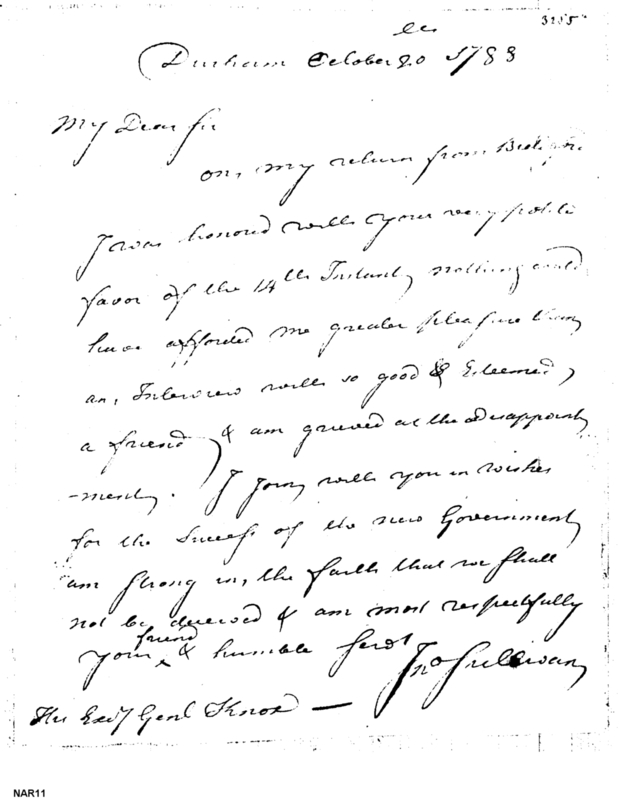 3255
Durham October 20 1788
My Dear Sir
on, my return from
I was honored with your very polite
favor of the 14th Instant, nothing could
have afforded me greater pleasure than,
an, Interview with so good & Esteemed,
a friend, & am grieved at the disappoint
-ment,. I Joyn, with you in wishes
for the Success of the new Government,
am Strong in, the faith that we Shall
not be deceived & am most respectfully
your friend & humble Servt
Jno Sullivan,
His Excy Genl Knox —
NAR11